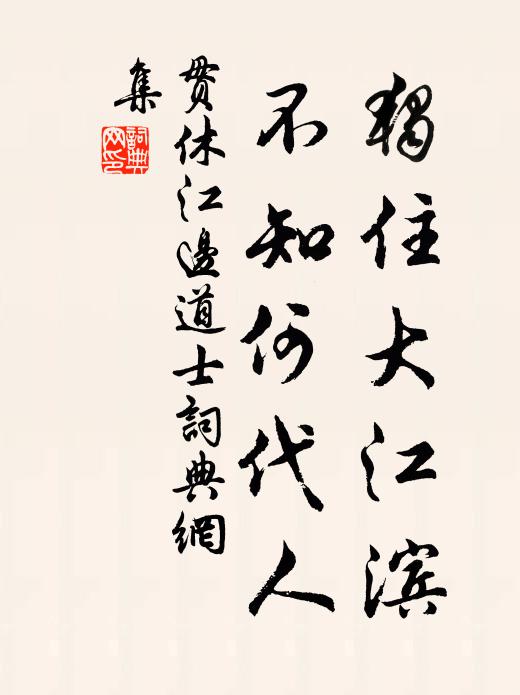 獨住大江滨
不知何代人
貫休江邊道士詞典網
集
詞典網印